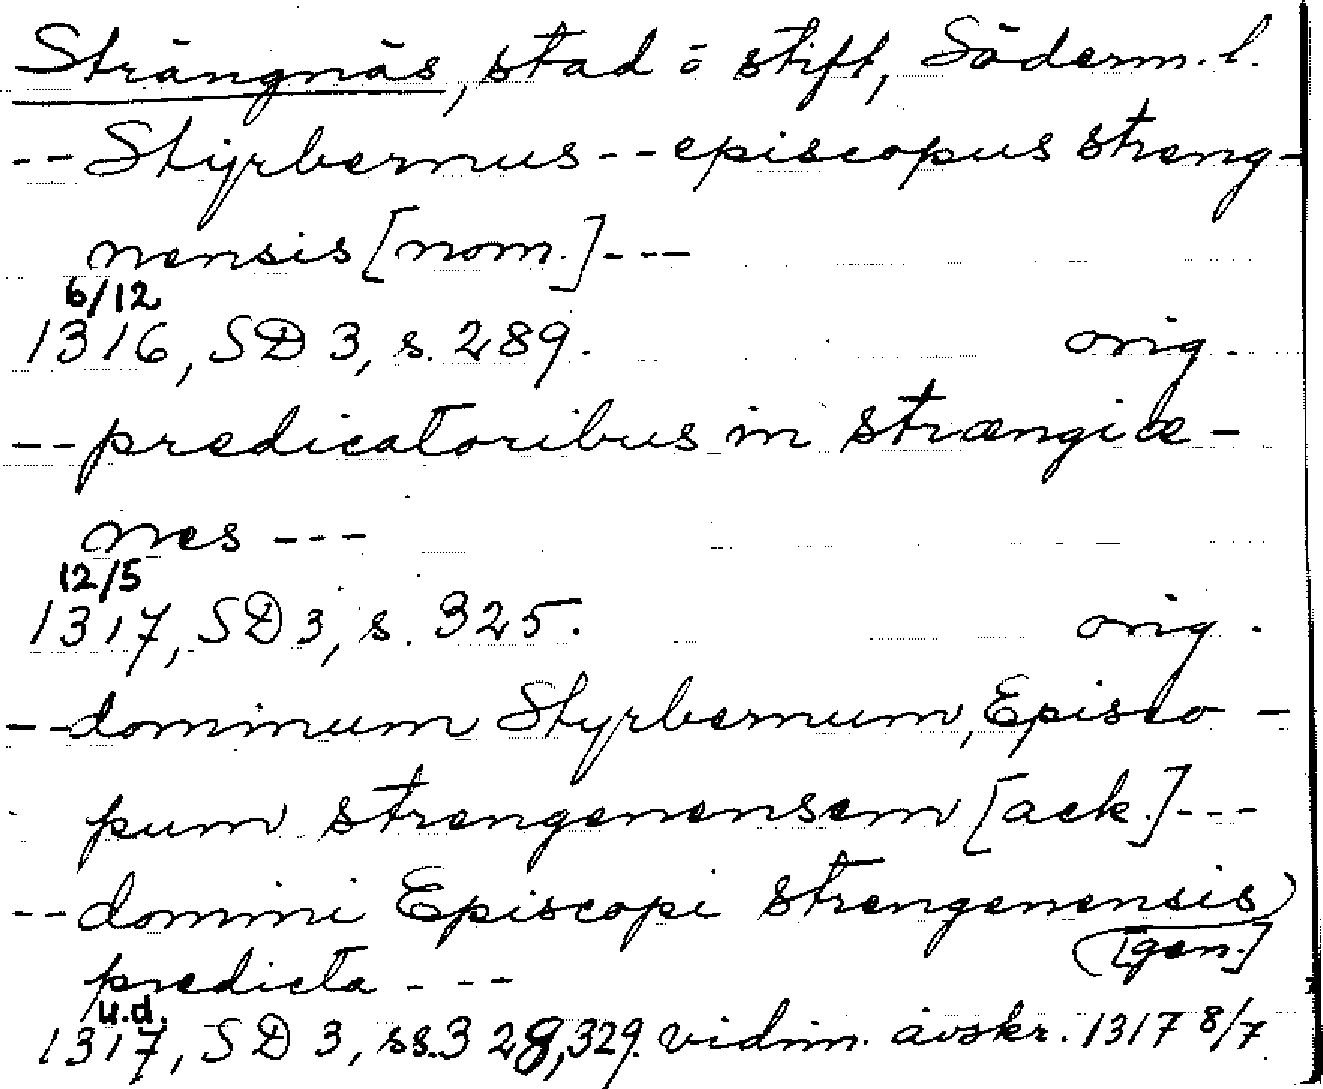 Strängnäs, stad o stift, Söderm. l.
-- Styrbernus -- episcopus streng-
nensis [nom.] ---
6/12
1316, SD 3, s. 289. orig.
-- predicatoribus in strængiæ-
nes ---
12/5
1317, SD 3, s. 325. orig.
-- dominum Styrbernum, Episco-
pum strengenensem [ack.] ---
-- domini Episcopi strengenensis
[gen.]
predicta ---
u.d.
1317, SD 3, ss. 328, 329. vidim. avskr. 1317 8/7